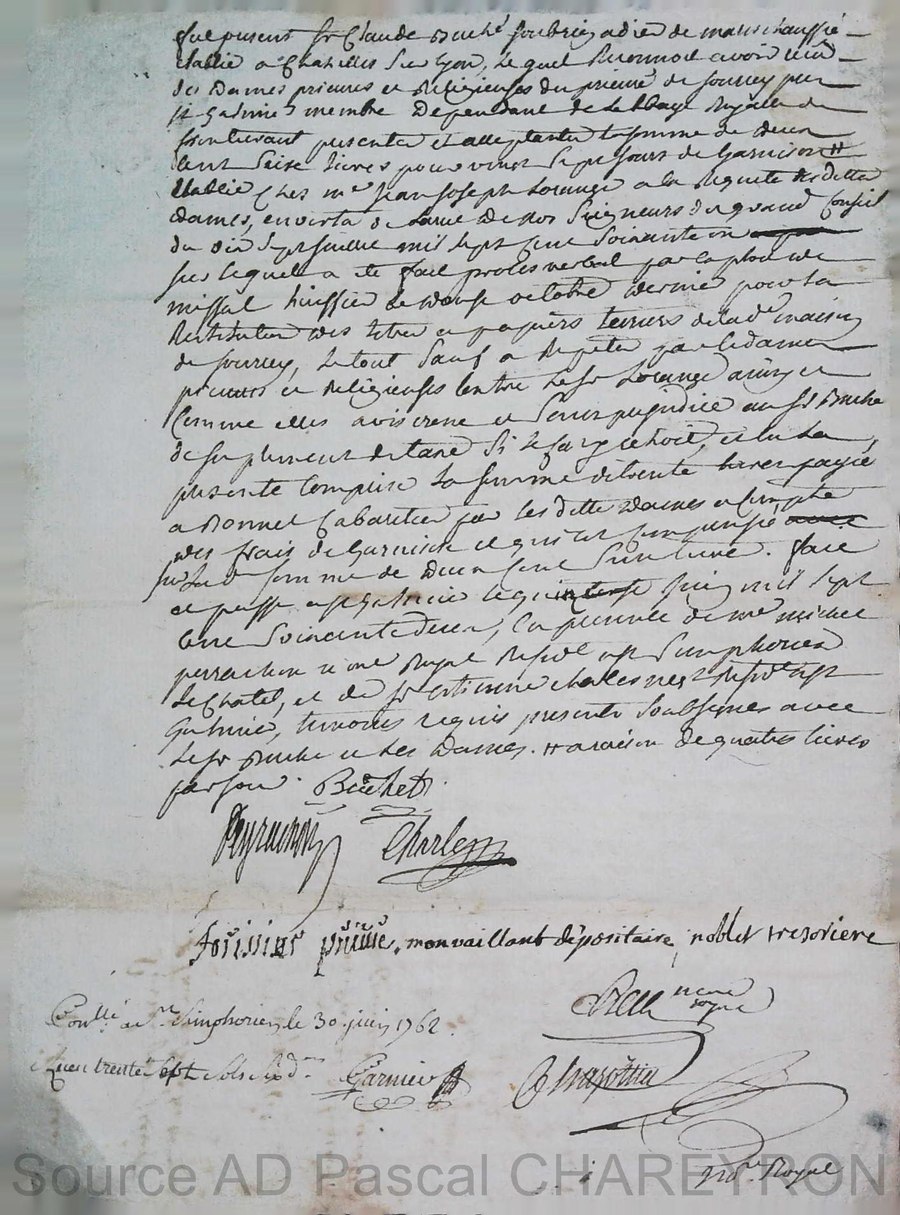 fut present Sr Claude Buchet soubrigadier de marechaussée
etablie a Chazelles sur Lyon, lequel reconnoit avoir reçu
des Dames prieures et Religieuses du prieuré de Jourcey pres
St Galmier membre Dependant de L'abbaye Royalle de
frontevraut presente et acceptante la somme de deux
cent seize livres pour vingt sept jours de Garnison #
Etablie Chez me Jean Joseph Lorange a la Requete des dittes
dames, en vertu de Nos Seigneurs du grand Conseil
du dix sept cent soixante un
sur lequel a eté fait procès verbal par
missal huissier le octobre dernier pour la
Restitution des titres et papiers terriers de lade maison
de Jourcey, Le tout sauf a Repeter par les dames
prieures et Religieuses contre Le Sr Lorange ainsy et
Comme elles aviseront et sans prejudice au Sr Buchet
de suplement de taxe Si le cas y echoit, et en la
presente Comprise la somme de trente livres payée
a Bonnet Cabaretier par les dittes Dames a Compte
des frais de Garnison
sur lad somme de deux cent seize livres. fait
et passé a St Galmier le juin mil sept
cent soixante deux, En presence de me michel
perrachon nore Royal Resident a St Simphorien
Le Chatel, et de Sr Charles Resident a St
Galmier, temoins requis presents soussignés avec
Le Sr Buchet et Les Dames. # a raison de quatre livres
par jour. Buchet
Peyrachon Charles
prieure, monvaillant dépositaire, noblet tresoriere

Conllé a St Simphorien, le 30 juin 1762.
Reçu trente sept sols six drs Garnier

nore Royal
Source AD Pascal CHAREYRON